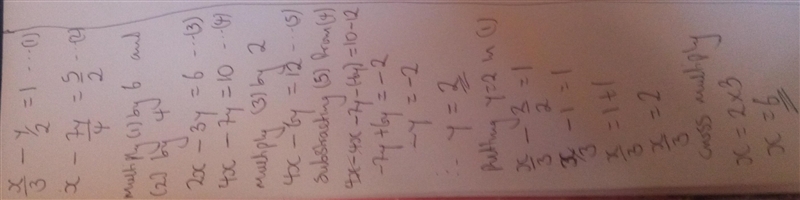 x/3 - y/2 = 1 ...(1)
x - 7y/4 = 5/2 ...(2)
multiply (1) by 6 and
(2) by 4
2x - 3y = 6 ...(3)
4x - 7y = 10 ...(4)
multiply (3) by 2
4x - 6y = 12 ...(5)
Substracting (5) from (4)
4x-4x-7y-(-6y)=10-12
-7y+6y = -2
-y = -2
∴ y = 2
putting y=2 in (1)
x/3 - 2/2 = 1
x/3 - 1 = 1
x/3 = 1+1
x/3 = 2
cross multiply
x = 2x3
x = 6